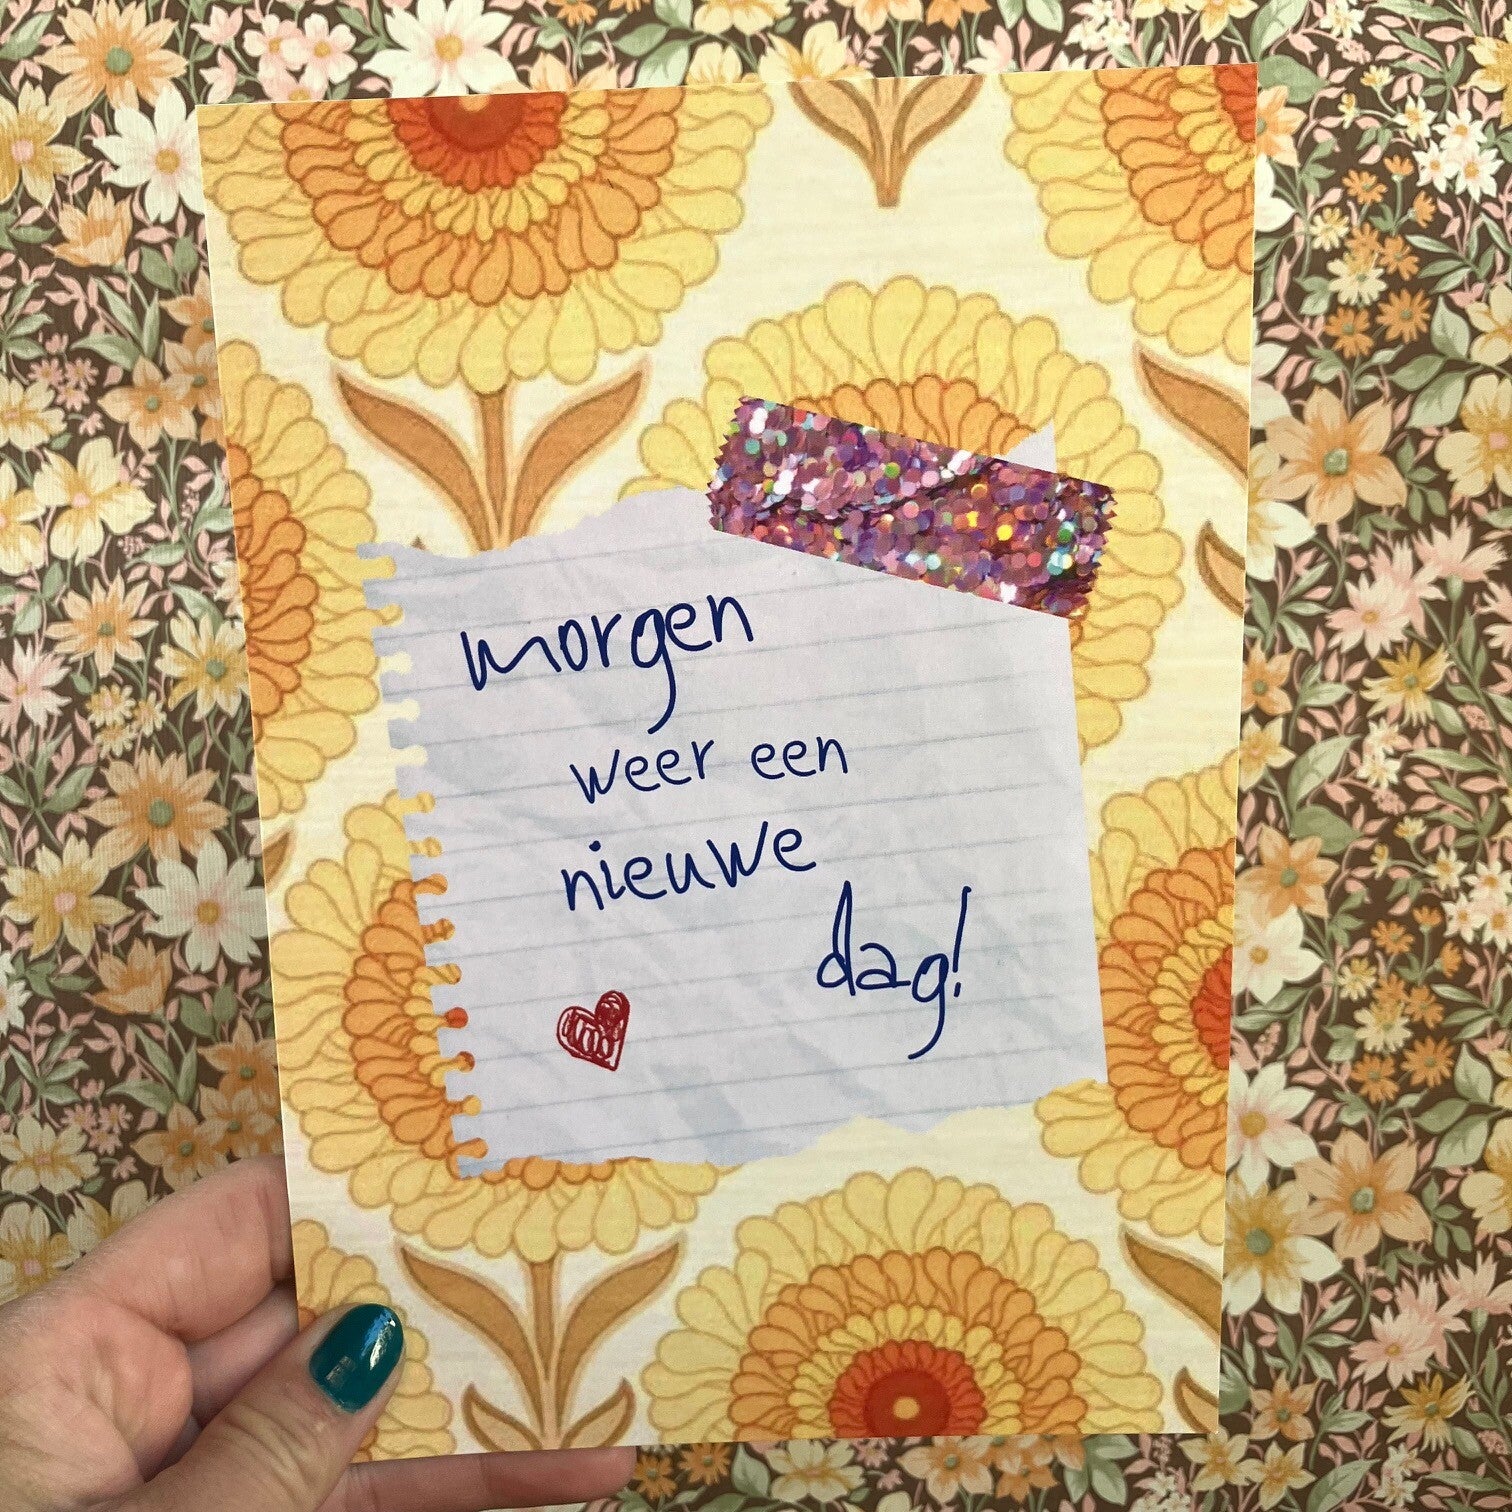 morgen
weer een
nieuwe
dag!